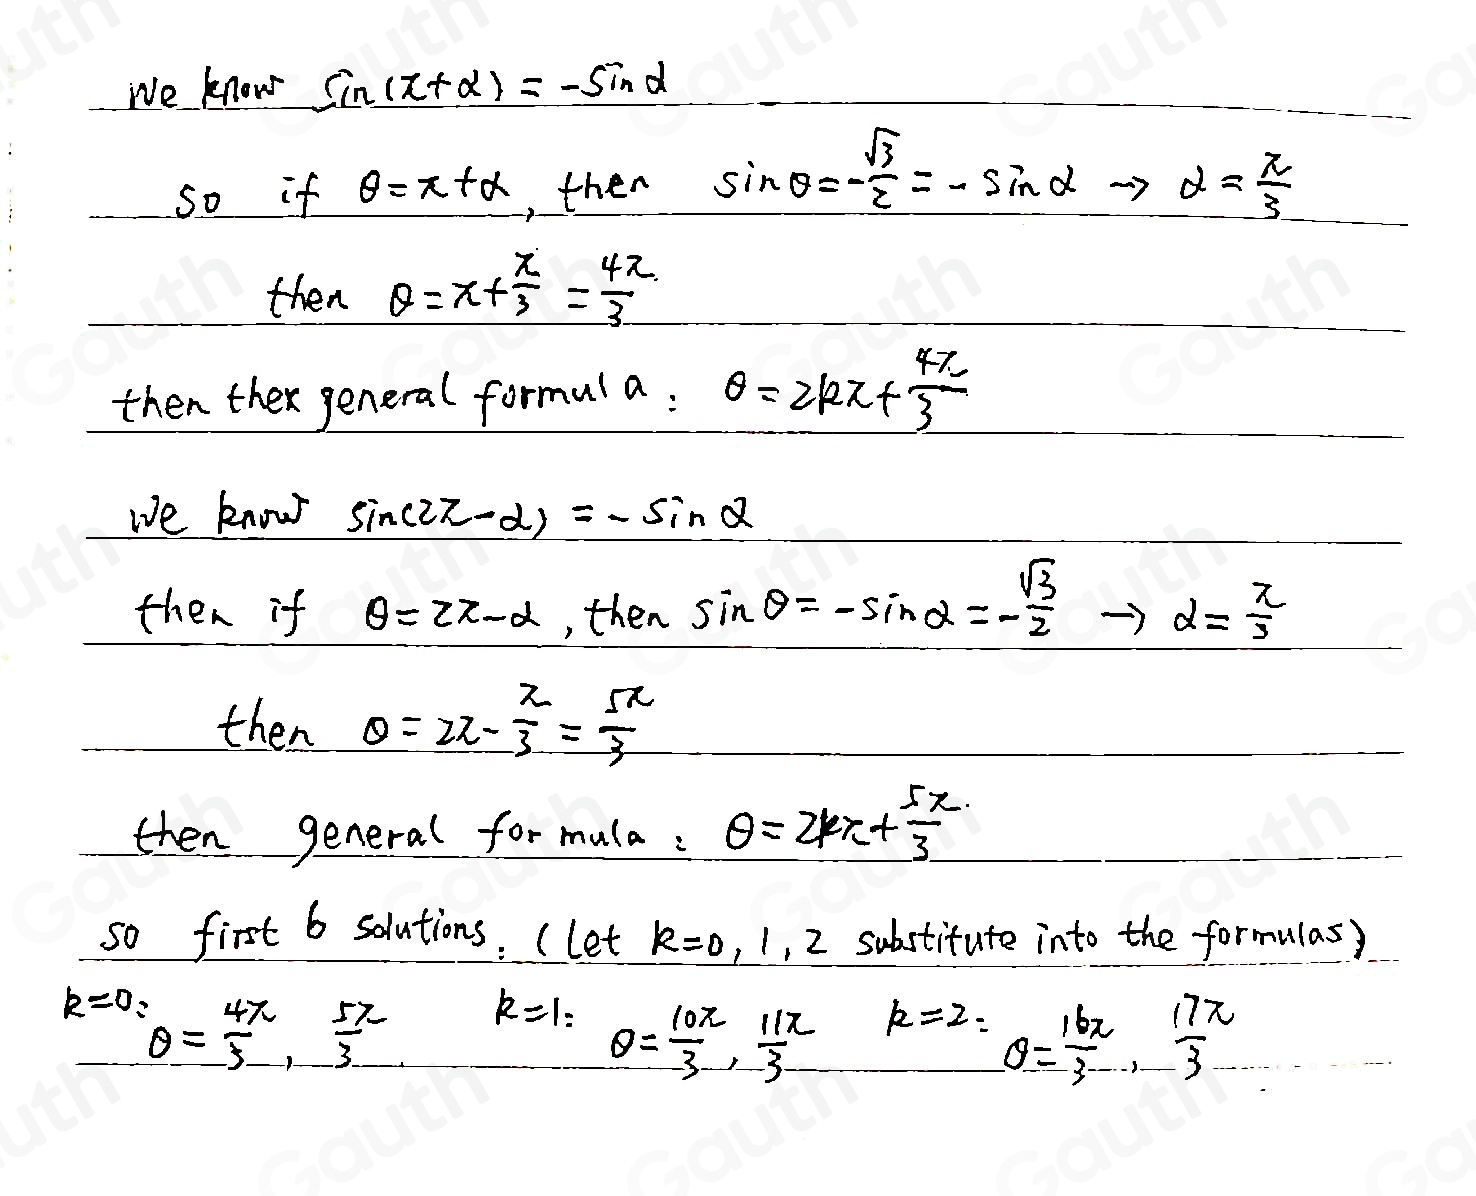 We know sin(π+α) = -sin α
so if θ=π+α, then sinθ=-√3/2 = -sin α → α=π/3
then θ=π+π/3 = 4π/3.
then thex general formula: θ=2kπ+4π/3
We know sin(2π-α) = -sin α
then if θ=2π-α, then sinθ=-sinα=-√3/2 → α=π/3
then θ=2π-π/3=5π/3
then general formula: θ=2kπ+5π/3.
so first 6 solutions: (Let k=0, 1, 2 substitute into the formulas)
k=0: θ=4π/3, 5π/3. k=1: θ=10π/3, 11π/3 k=2: θ=16π/3, 17π/3
Gauth